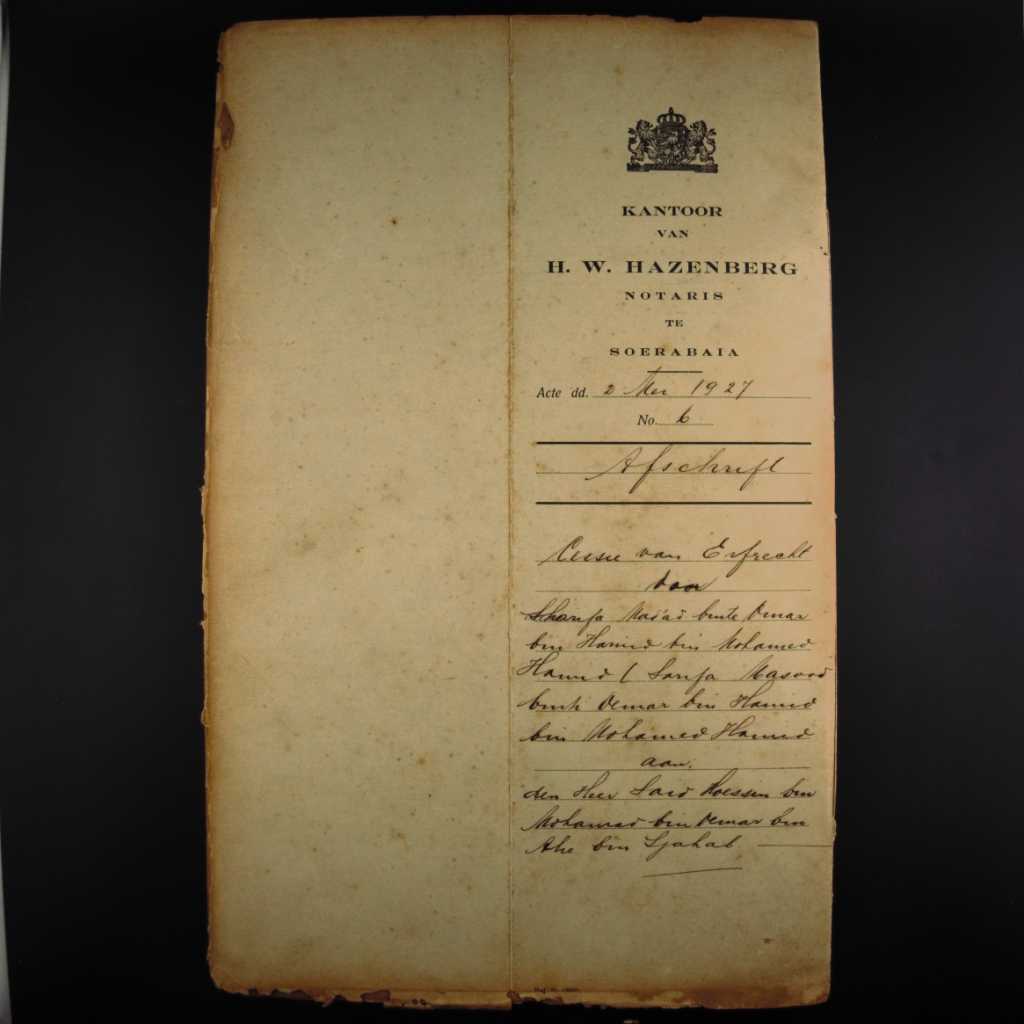 KANTOOR
VAN
H. W. HAZENBERG
NOTARIS
TE
SOERABAIA
Acte dd. 2 Mei 1927
No. 6
Afschrift
Cessie van Erfrecht
door
binte Oemar
bin Hamid bin Mohamed
Hamid ( Sarifa
binti Oemar bin Hamid
bin Mohamed Hamid
aan.
den Heer Said Hoessen bin
Mohamad bin Oemar bin
bin Sjahab